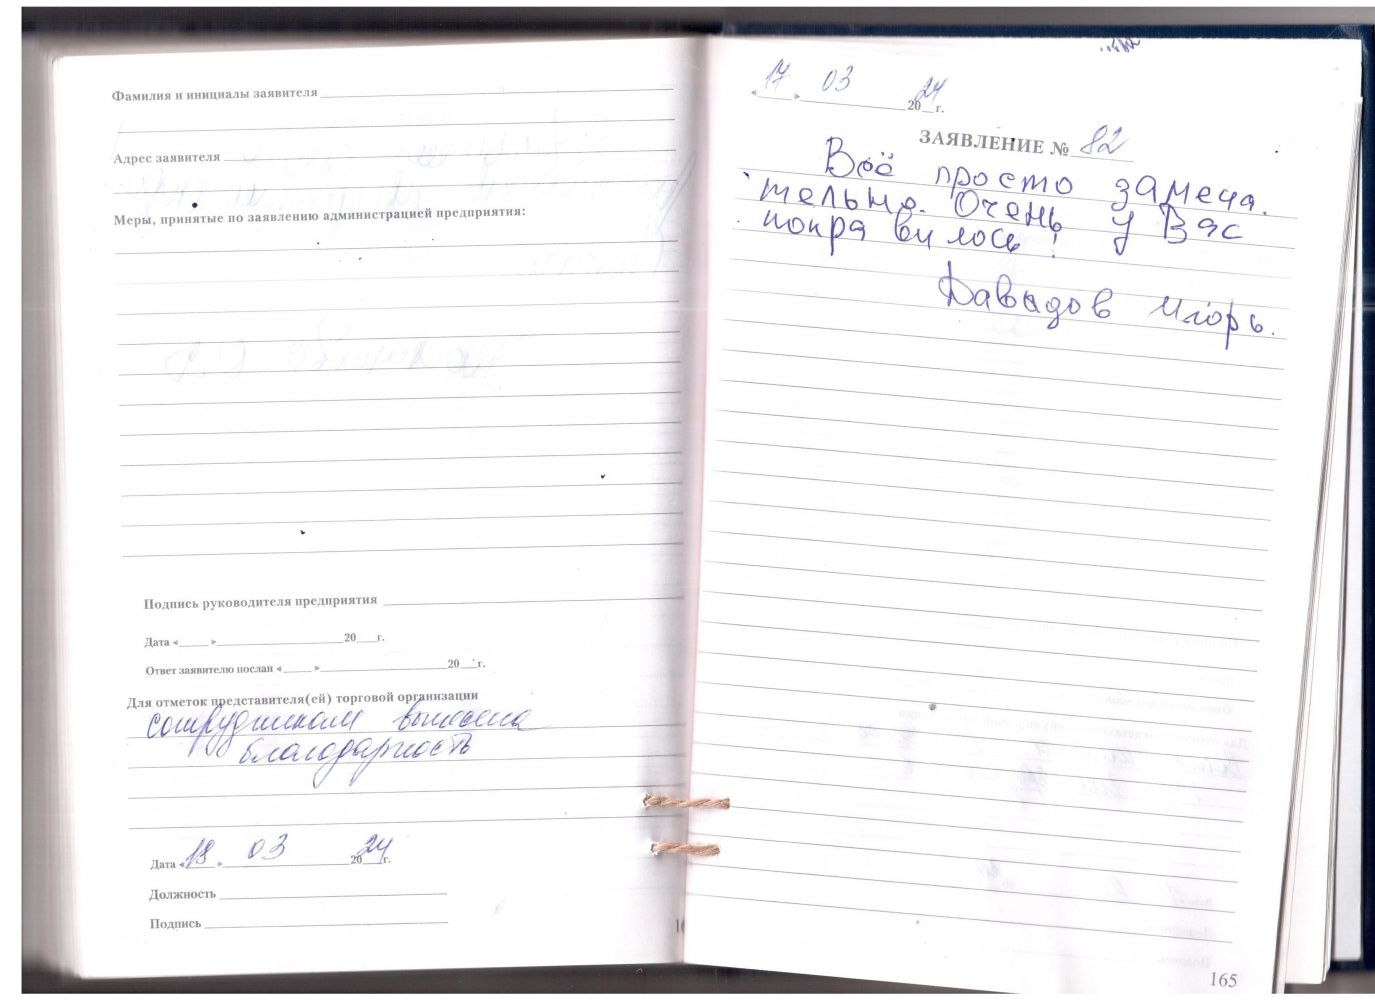 Фамилия и инициалы заявителя
Адрес заявителя
Меры, принятые по заявлению администрацией предприятия:
Подпись руководителя предприятия
Дата « » 20 г.
Ответ заявителю послан « » 20 г.
Для отметок представителя(ей) торговой организации
сотрудникам вынесена
благодарность
Дата «19» 03 2024г.
Должность
Подпись
«17» 03 2024г.
ЗАЯВЛЕНИЕ № 82
Всё просто замеча.
тельно. Очень у Вас
понравилось!
Давыдов Игорь.
165